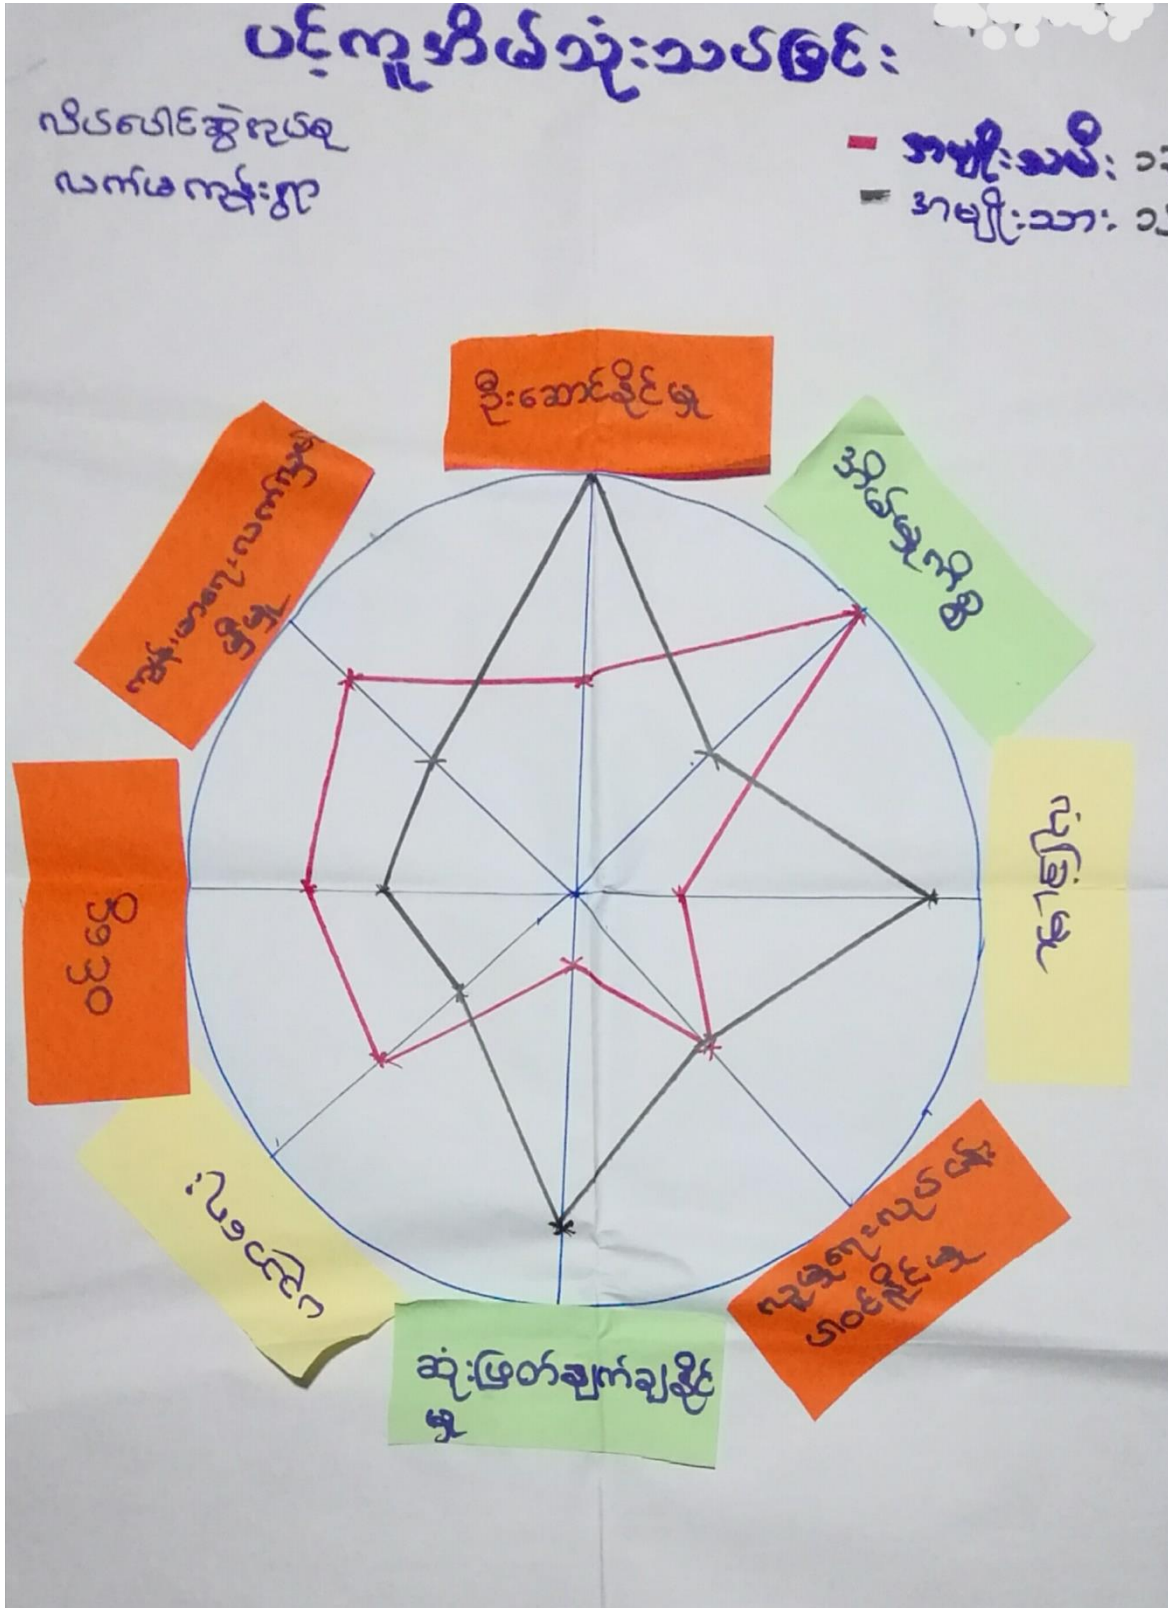 ပင့်ကူအိမ်သုံးသပ်ခြင်း
လိပ်ခေါင်ဆွဲလုပ်စု
လက်ဖကုန်းရွာ
အမျိုးသမီး
အမျိုးသား
ဦးဆောင်နိုင်မှု
အိမ်မှုကိစ္စ
လုံခြုံမှု
လူမှုရေးလုပ်ငန်း
ပါဝင်နိုင်မှု
ဆုံးဖြတ်ချက်ချနိုင်
မှု
ပညာရေး
ဝင်ငွေ
ကျန်းမာရေးလက်လှမ်း
မှီမှု